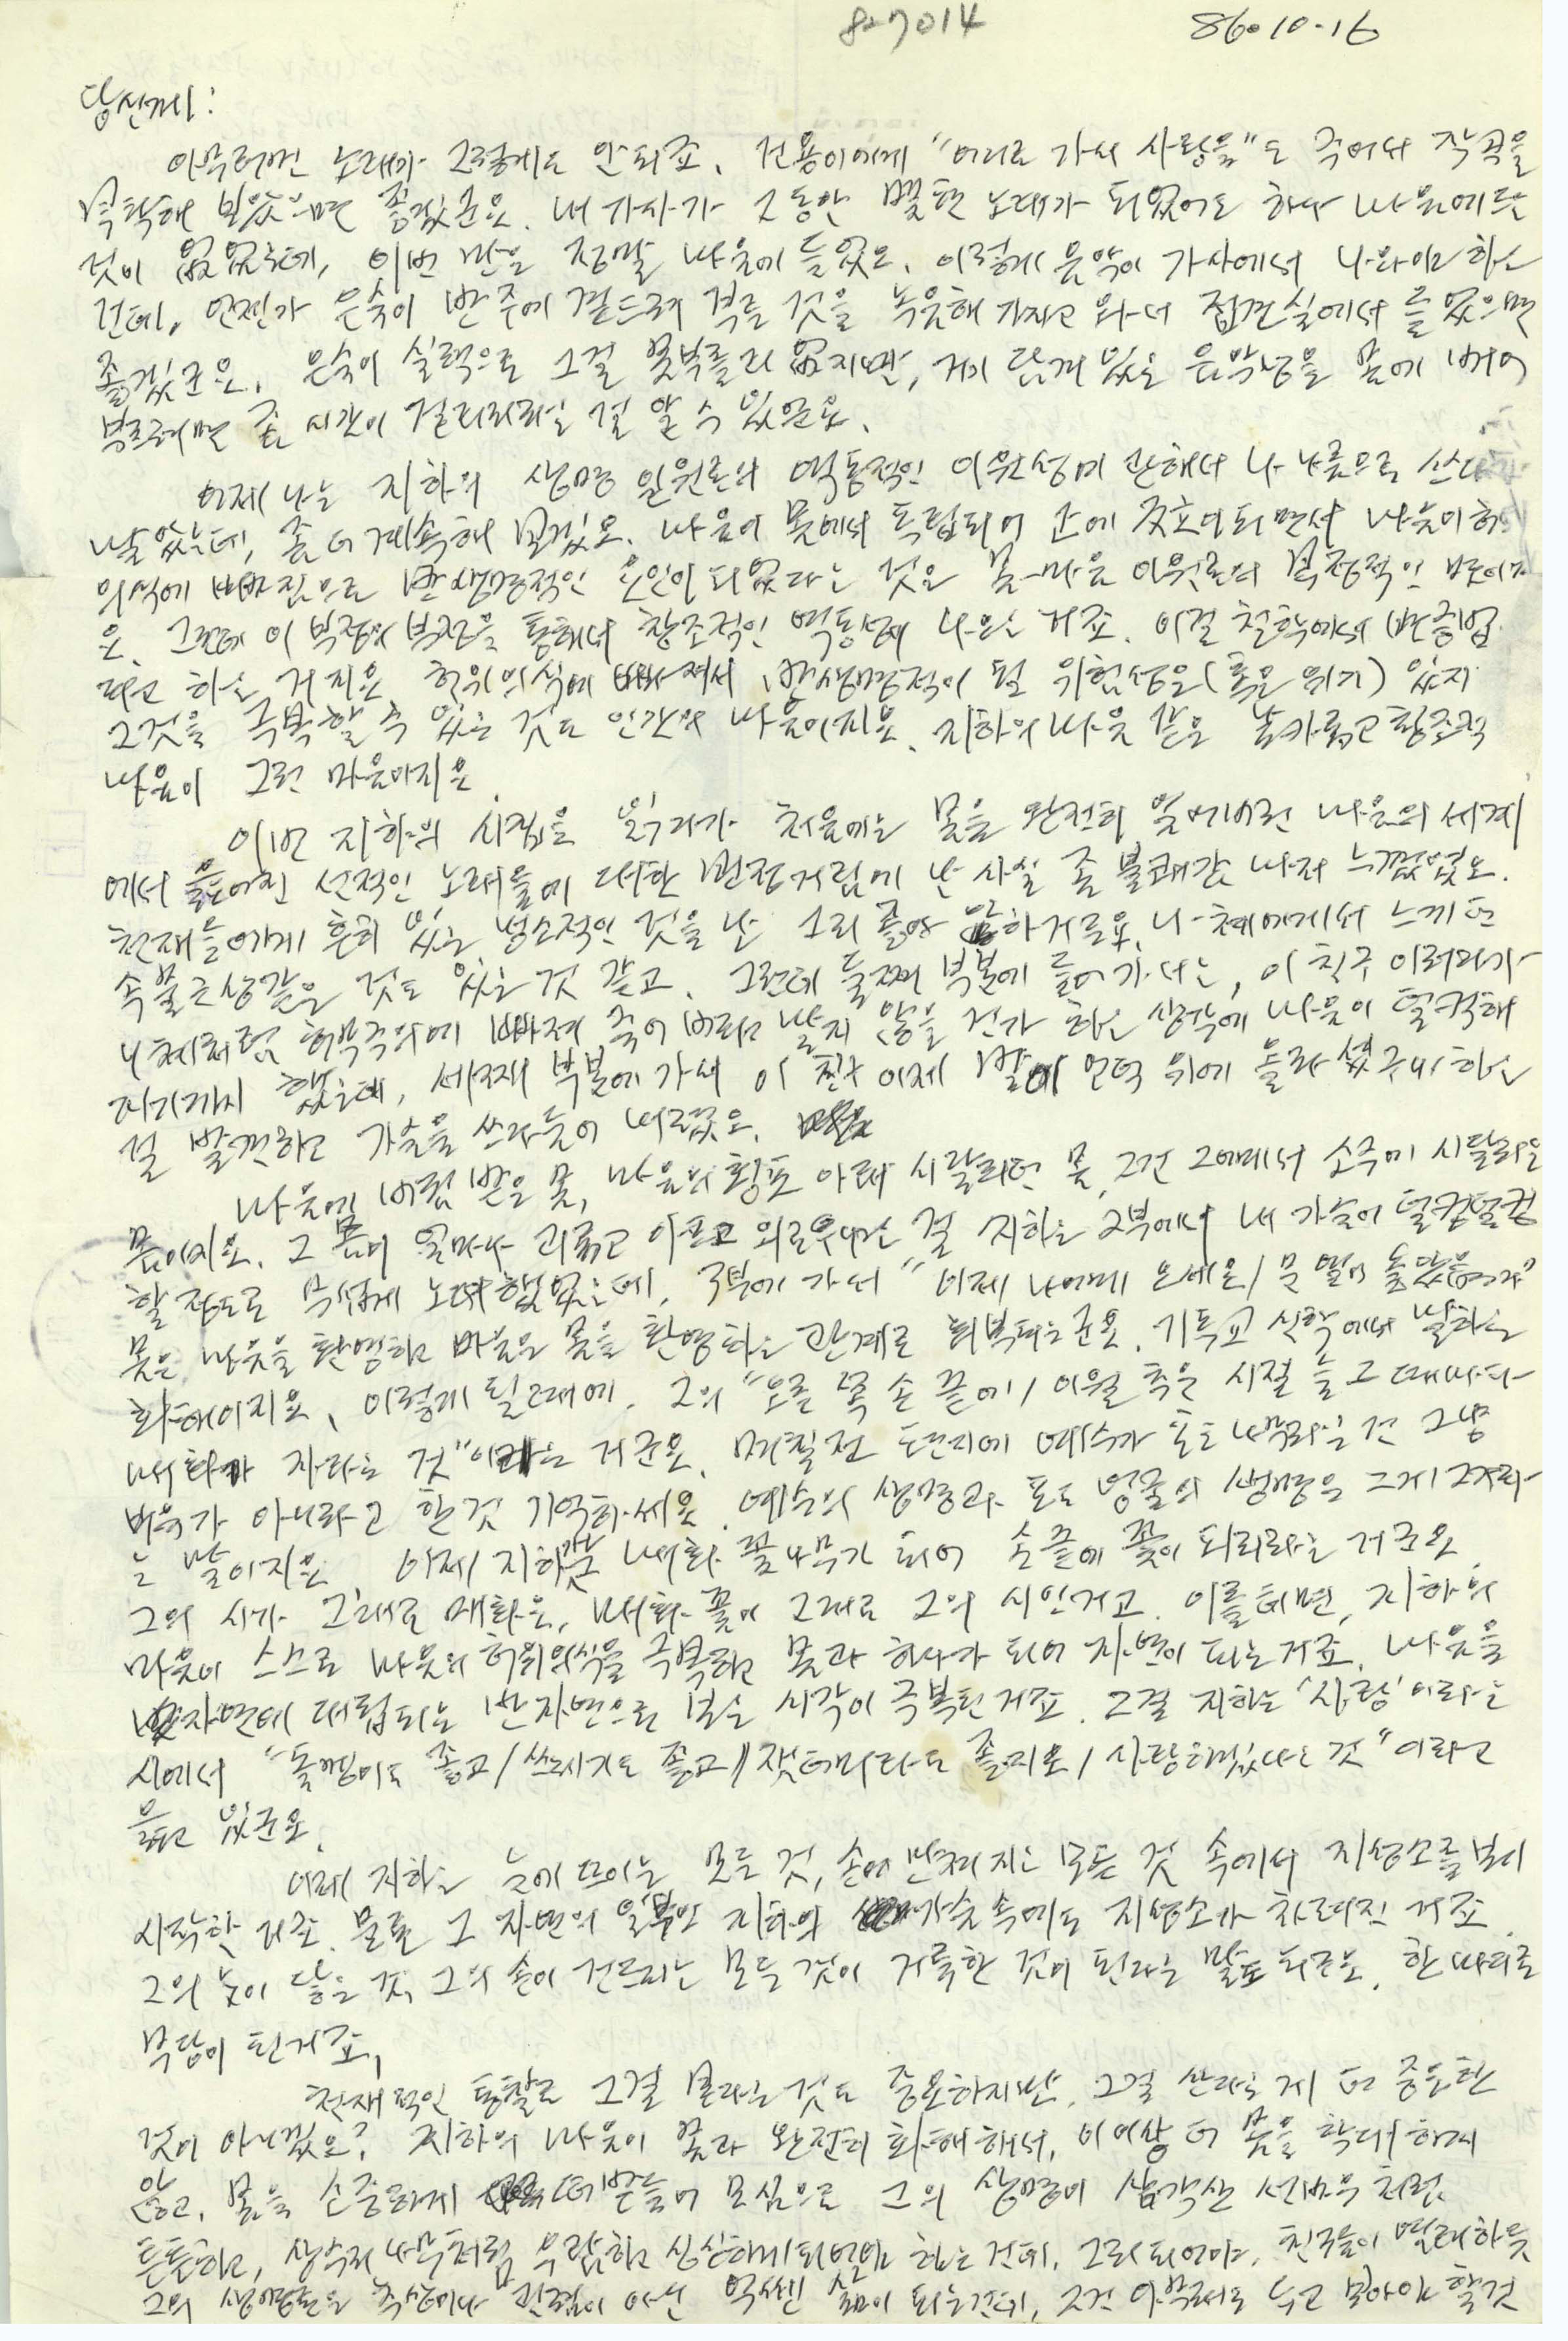 827014 86.10.16
당신께:
아무러면 노래가 그렇게도 안 되죠. 건용이에게 "어디로 가서 사랑을"도 주어서 작곡을
부탁해 보았으면 좋겠군요. 내 가사가 그동안 몇 편 노래가 되었어도 하나 마음에 드는
것이 없었는데, 이번 만은 정말 마음에 들었오. 이렇게 음악이 가사에서 나와야 하는
건데. 언젠가 은숙이 반주에 곁드려 부른 것을 녹음해 가지고 와서 접견실에서 들었으면
좋겠군요. 은숙이 실력으로 그걸 못 부를 리 없지만, 거기 담겨 있는 음악성을 몸에 배어
부르려면 좀 시간이 걸리리라는 걸 알 수 있군요.
어제 나는 지하의 생명 일원론의 역동적인 이원성에 관해서 나 나름으로
말했는데, 좀 더 계속해 보겠오. 마음이 몸에서 독립되어 마음이 허
위의식에 빠짐으로 반생명적인 요인이 되었다는 것은 몸-마음 이원론의 부정적인 면이지
요. 그런데 이 부정의 부정을 통해서 창조적인 역동성이 나오는 거죠. 이걸 철학에서 변증법
이라고 하는 거지요. 허위의식에 빠져서 반생명적이 될 위험성은(혹은 위기) 있지
그것을 극복할 수 있는 것도 인간의 마음이지요. 지하의 마음 같은 날카롭고 창조적
마음이 그런 마음이지요.
이번 지하의 시집을 읽다가 처음에는 몸을 완전히 잊어버린 마음의 세계
에서 읊어진 선적인 노래들에 대한 빈정거림에 난 사실 좀 불쾌감마저 느꼈었오.
천재들에게 흔히 있는 냉소적인 것을 난 그리 좋아 안 하거든요. 니체에게서 느끼던
속물근성 같은 것도 있는 것 같고. 그런데 둘째 부분에 들어가서는, 이 친구 이러다가
니체처럼 허무주의에 빠져 죽어 버리고 말지 않을 건가 하는 생각에 마음이 덜컥해
지기까지 했는데, 세째 부분에 가서 이 친구 이제 언덕 위에 올라섰구나 하는
걸 발견하고 가슴을 쓰다듬어 내렸오.
마음에 버림 받은 몸, 마음의 횡포 아래 시달리던 몸, 그건 그에게서 소주에 시달리는
몸이지요. 그 몸이 얼마나 괴롭고 아프고 외로운가 하는 걸 지하는 2부에서 내 가슴이 덜컹덜컹
할 정도로 무섭게 노래했었는데, 3부에 가서 "이제 나에게 오세요/
몸은 마음을 환영하고 마음은 몸을 환영하는 관계로 회복되는군요. 기독교 신학에서 말하는
화해이지요. 이렇게 될 때에, 그의 "오른쪽 손 끝에/ 이월 혹은 시절 늘 그 때마다
매화가 자라는 것"이라는 거군요. 며칠 전 편지에 예수가 포도나무라는 건 그냥
비유가 아니라고 한 것 기억하세요. 예수의 생명과 포도 넝쿨의 생명은 그게 그거라
는 말이지요. 이제 지하는 매화 꽃나무가 되어 손끝에 꽃이 피리라는 거군요.
그의 시가 그대로 매화요, 매화꽃이 그대로 그의 시인거고. 이를테면, 지하의
마음이 스스로 마음의 허위의식을 극복하고 몸과 하나가 되어 자연이 되는 거죠. 마음을
자연에 대립되는 반자연으로 보는 시각이 극복된 거죠. 그걸 지하는 '사랑'이라는
시에서 "돌멩이도 좋고/ 쓰레기도 좋고// 잿더미라도 좋지요/ 사랑하겠다는 것"이라고
읊고 있군요.
이제 지하는 눈에 띄이는 모든 것, 손에 만져지는 모든 것 속에서 지성소를 보기
시작한 거죠. 물론 그 자연의 일부인 지하의 가슴 속에도 지성소가 차려진 거죠.
그의 눈이 닿는 것, 그의 손이 건드리는 모든 것이 거룩한 것이 된다는 말도 되구요. 한 마디로
무당이 된거죠.
천재적인 통찰로 그걸 본다는 것도 중요하지만, 그걸 산다는 게 더 중요한
것이 아니겠오? 지하의 마음이 몸과 완전히 화해해서, 이 이상 더 몸을 학대하지
않고, 몸을 소중하게 떠받들어 모심으로 그의 생명이 삼각산 선바위처럼
튼튼하고, 상수리 나무처럼 우람하고 싱싱하게 되어야 하는 건데. 그리 되어야, 친구들이 염려하듯
그의 생명론은 관념이 아닌 억센 삶이 되는건데, 그건 아무래도 두고 보아야 할 것